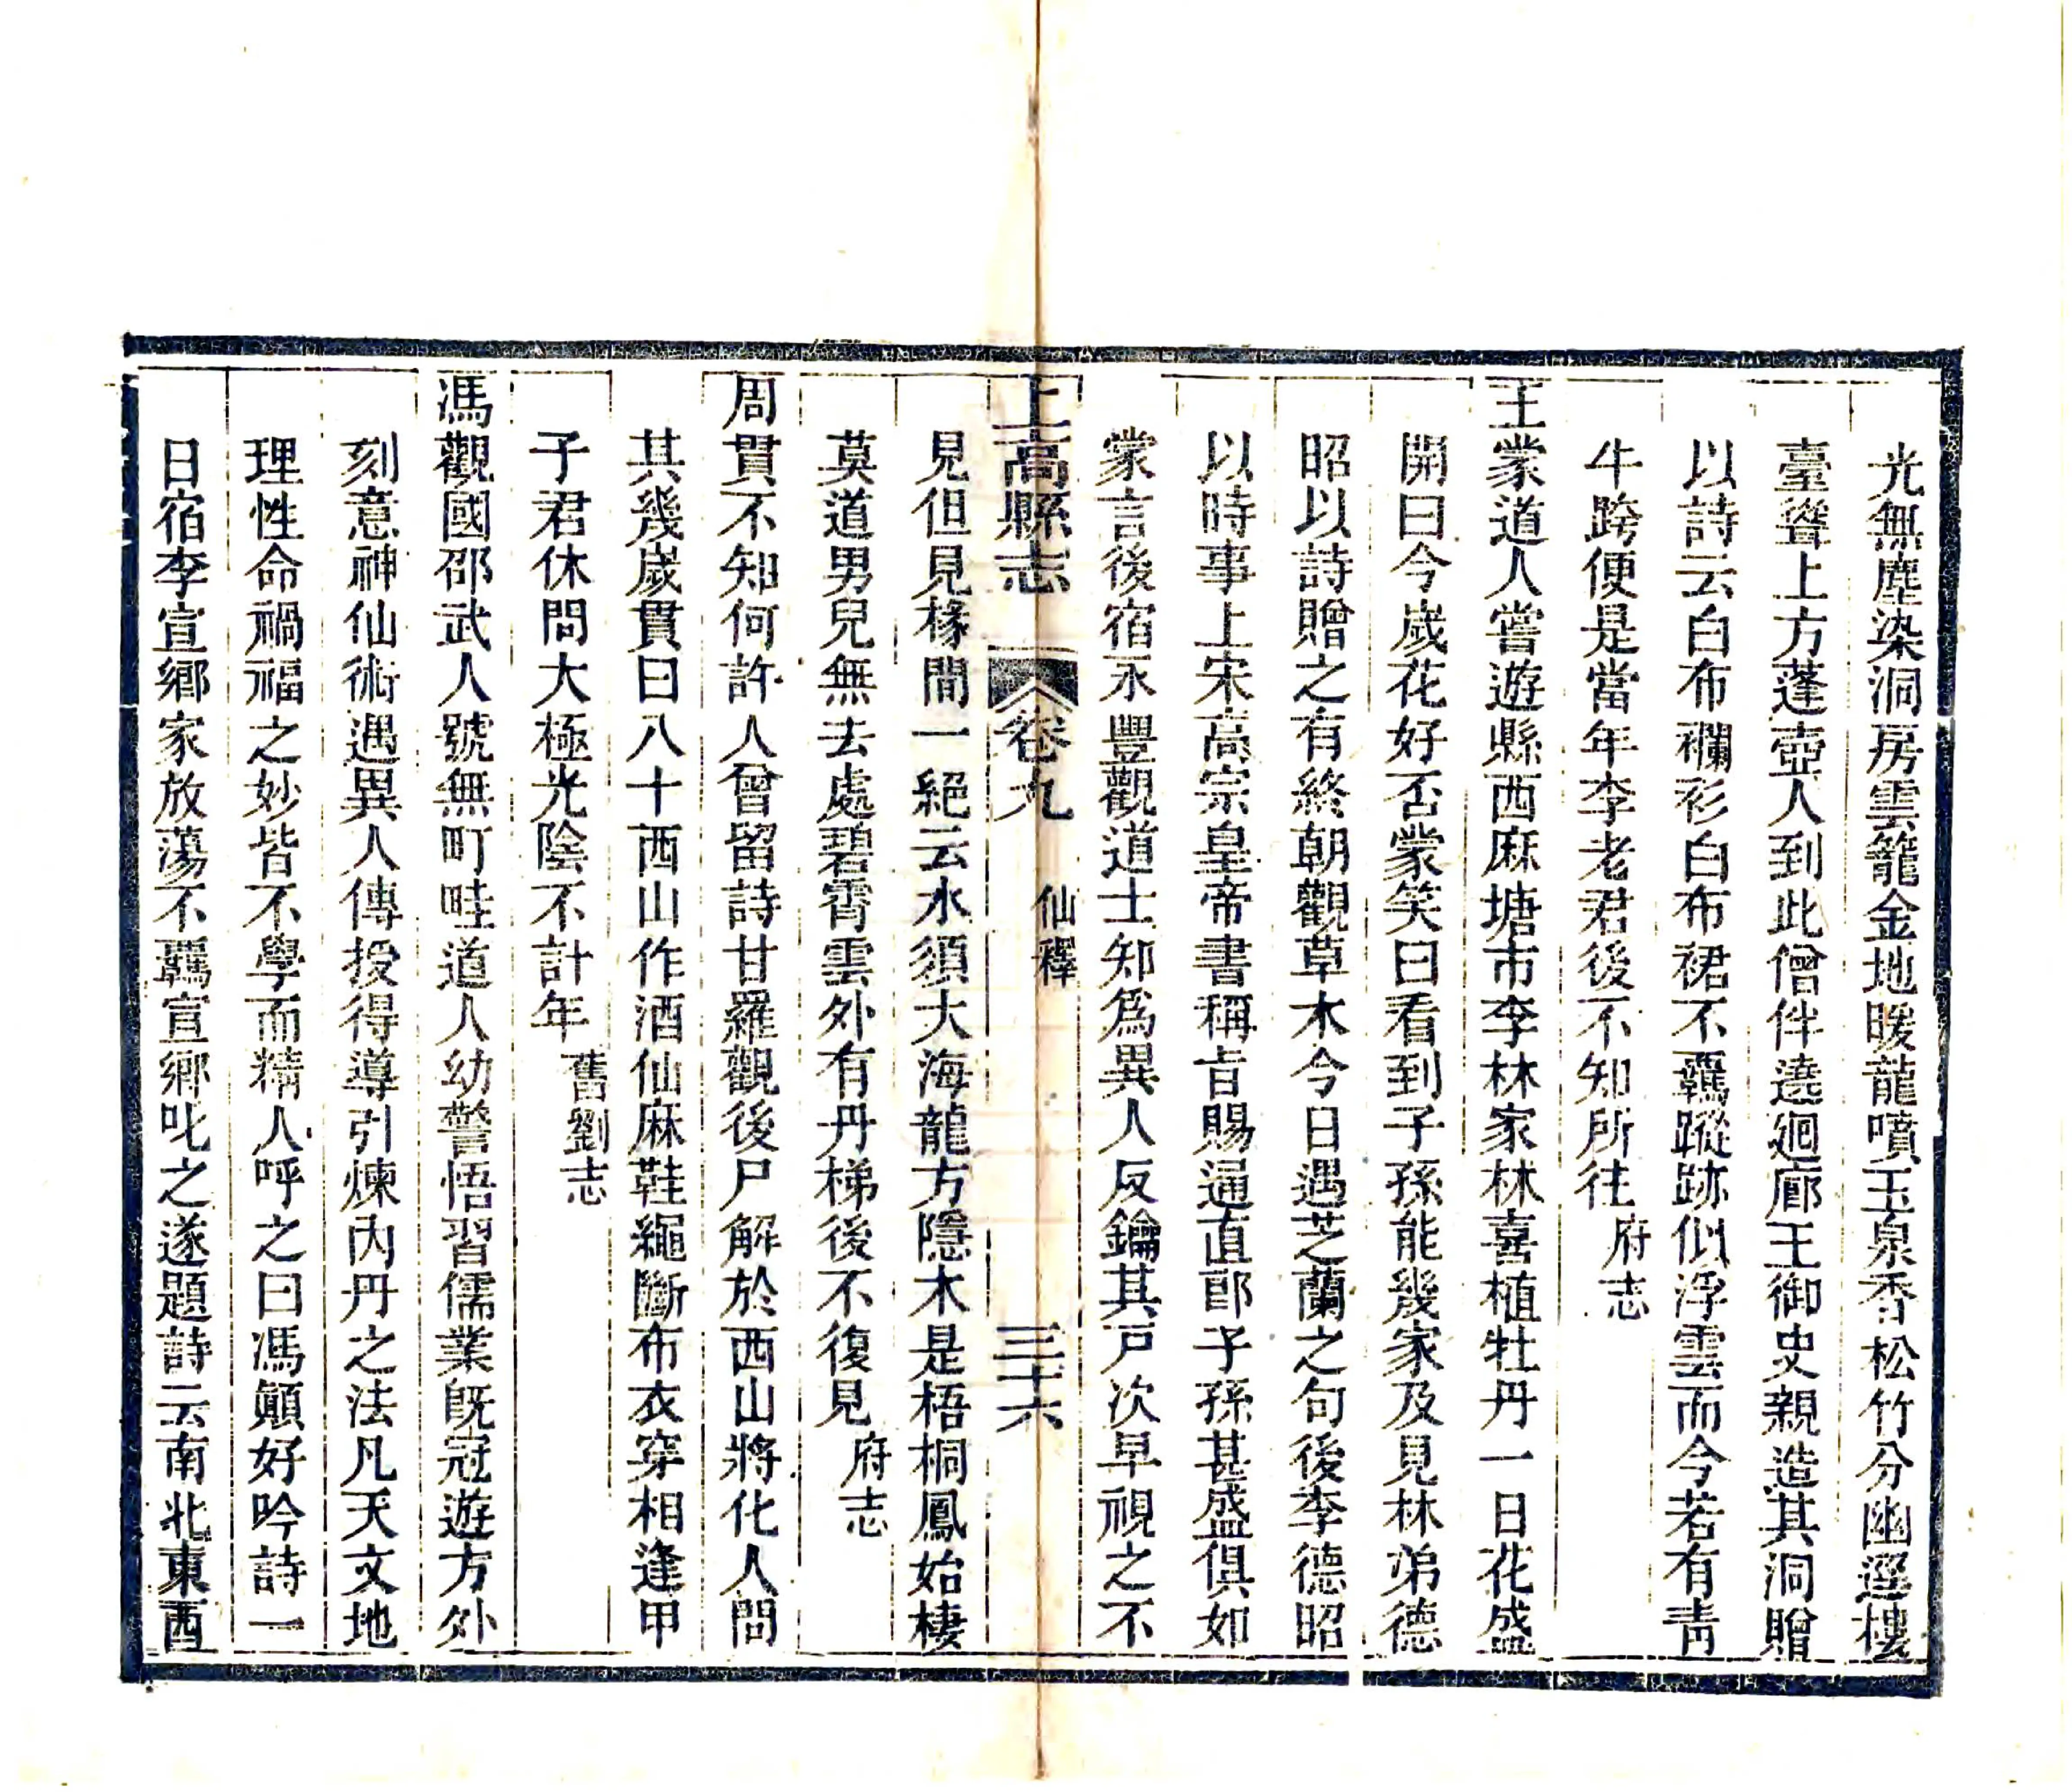 光無塵染洞房雲籠金地暖龍噴玉泉香松竹分幽逕樓
臺聳上方蓬壺人到此僧伴遶廻廊王御史親造其洞贈
以詩云白布襴衫白布裙不羈蹤跡似浮雲而今若有靑
牛跨便是當年李老君後不知所往府志
王蒙道人嘗遊縣西麻塘市李林家林喜植牡丹一日花盛
開曰今嵗花好否蒙笑曰看到子孫能幾家及見林弟德
昭以詩贈之有終朝觀草木今日遇芝蘭之句後李德昭
以時事上宋高宗皇帝書稱旨賜通直郎子孫甚盛俱如
蒙言後宿永豐觀道士知為異人反鑰其戸次早視之不
上高縣志
卷九
仙釋
三十六
見但見椽間一絕云水須大海龍方隱木是梧桐鳳始棲
莫道男兒無去處碧霄雲外有丹梯後不復見府志
周貫不知何許人曾留詩甘羅觀後尸解於西山將化人問
其幾嵗貫曰八十西山作酒仙麻鞋繩斷布衣穿相逢甲
子君休問大極光陰不計年舊劉志
馮觀國邵武人號無町畦道人幼警悟習儒業旣冠遊方外
刻意神仙術遇異人傳授得導引煉內丹之法凡天文地
理性命禍福之妙皆不學而精人呼之曰馮顚好吟詩一
日宿李宣鄉家放蕩不羈宣鄉叱之遂題詩云南北東西